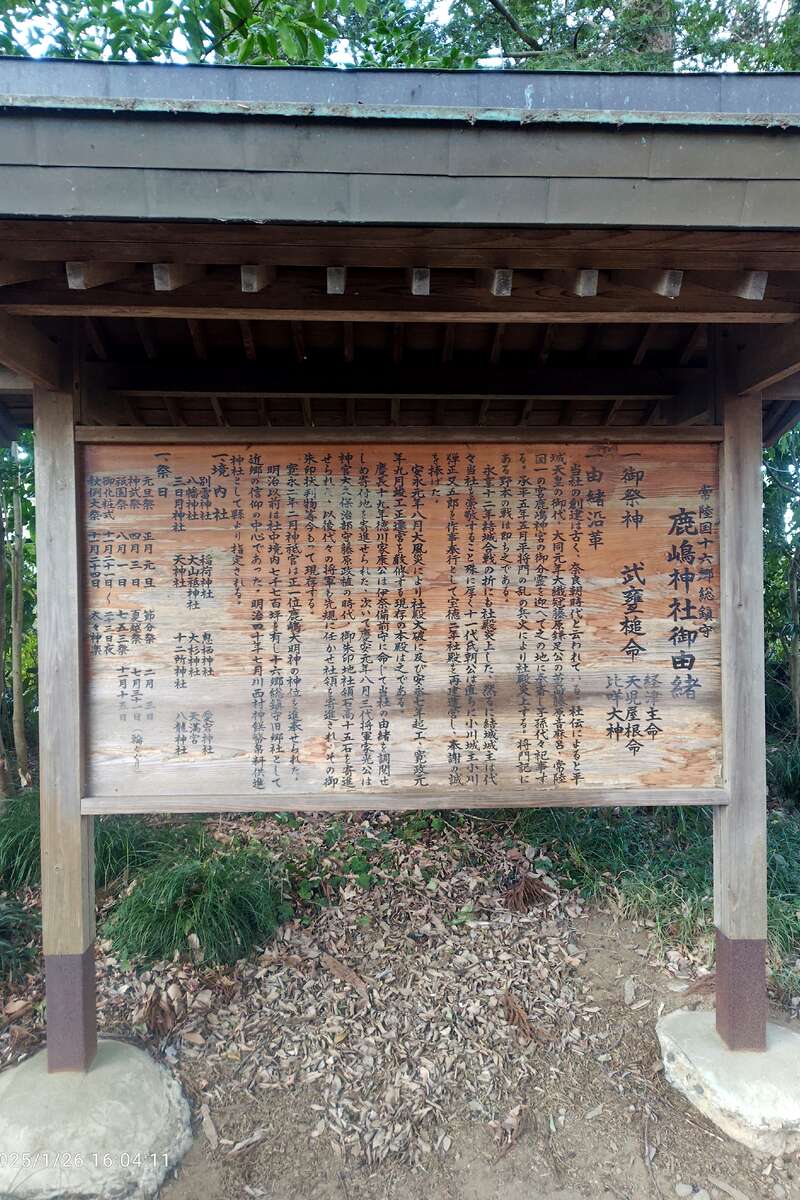 常陸国十六郷総鎮守
鹿嶋神社御由緒
一御祭神　武甕槌命　経津主命
天児屋根命
比咩大神
一由緒沿革
当社の創建は古く、奈良朝時代と云われている。社伝によると平
城天皇の御代、大同元年大織冠藤原鎌足公の
国一の宮鹿嶋神宮の御分霊を迎へてこの地に
る。承平五年平将門の乱の兵火により社殿炎上する。将門記に
ある野本の戦は即ち之である。
永享十二年結城合戦の折にも社殿炎上した。然るに結城城主十代
々当社を崇敬すること殊に厚く十一代氏朝公は直ちに小川城主小川
弾正又五郎を作事奉行として宝徳三年社殿を再建造営し、奉謝の誠
を捧げた。
安永元年八月大風災により社殿大破に及び安永七年起工、寛政元
年九月竣工正遷宮を厳修する現存の本殿は之である。
慶長十九年徳川家康公は伊奈備前守に命じて当社の由緒を調問せ
しめ寄付地を寄進せられた。次いで慶安元年八月三代将軍家光公は
神官大久保治部守藤原政植の時代、御朱印地社領石高十五石を寄進
せられた、以後代々の将軍も先規に任かせ社領を寄進され、その御
朱印状判物等今もって現存する。
寛永二年二月神祇官は正一位鹿嶋大明神の神位を進奉せられた。
明治以前は社中境内七千七百坪を有し十六郷総鎮守旧郷社として
近郷の信仰の中心であった。明治四十年七月川西村神饌幣帛料供進
神社として縣より指定される。
一境内社
別雷神社　稲荷神社　鬼栖神社　愛宕神社
八幡神社　大山祗神社　大杉神社　天満宮
三日月神社　天神社　十二所神社　八龍神社
一祭日
元旦祭　正月元旦　節分祭　二月三日
神武祭　四月三日　夏越祭　七月三十一日　輪くぐり
祇園祭　八月一日　七五三祭　十一月十五日
御化粧式　十月二十日〜二十三日夜
秋例大祭　十一月二十四日　太々神楽
2025/1/26 16:04:11